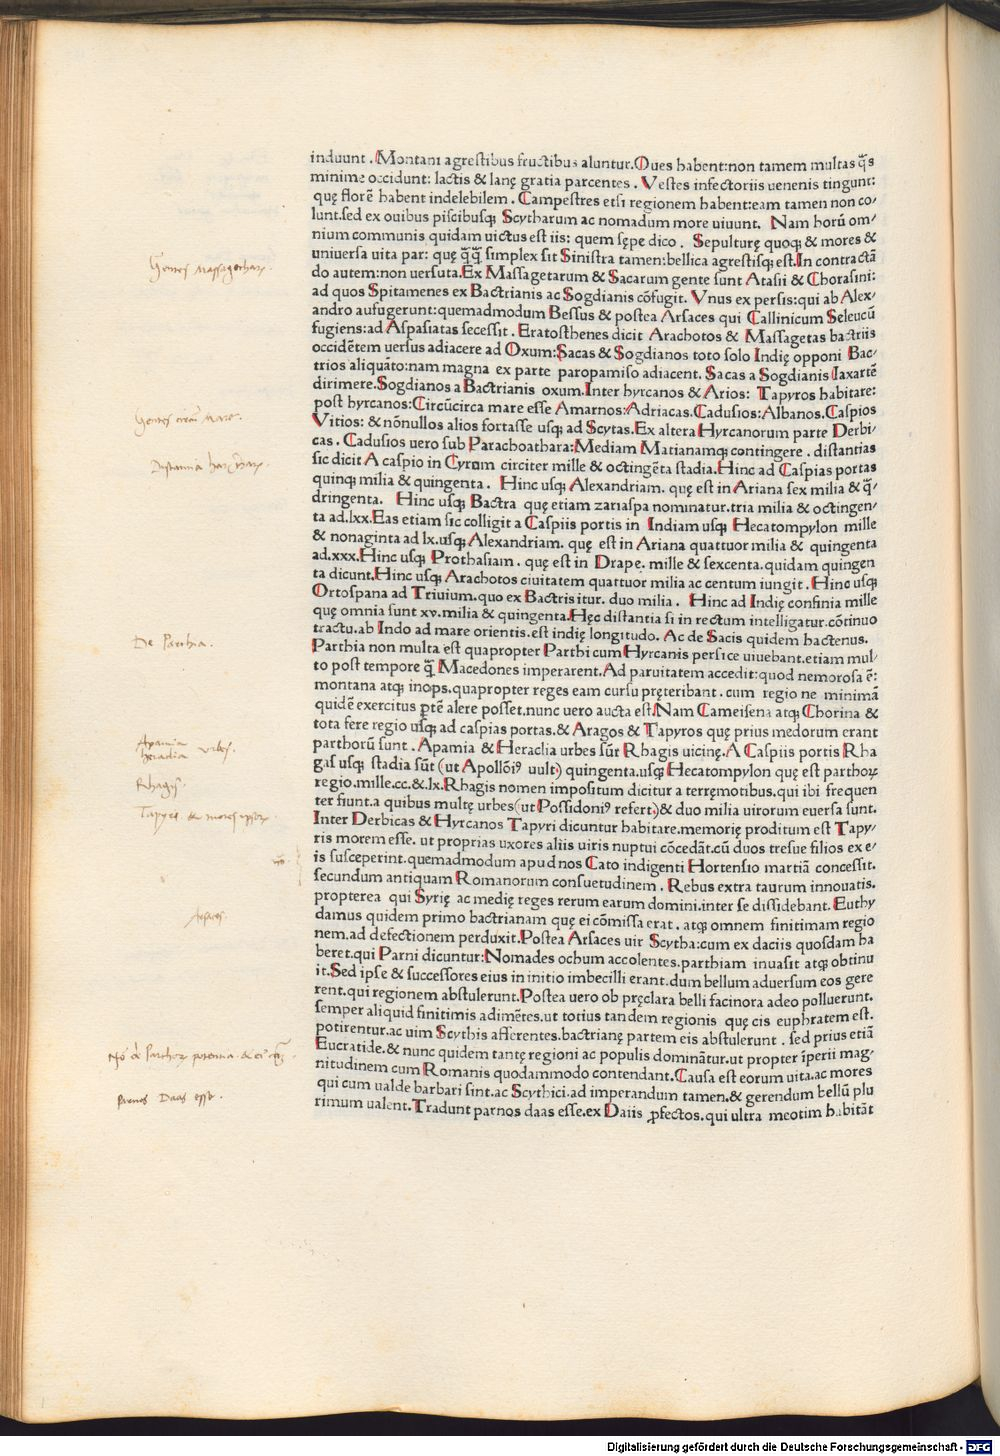 induunt . Montani agrestibus fructibus aluntur. Oues habent: non tamem multas q̃s
minime occidunt: lactis & lanę gratia parcentes . Vestes infectoriis uenenis tingunt:
quę florē habent indelebilem . Campestres etsi regionem habent: eam tamen non co/
lunt. sed ex ouibus piscibusq; Scytharum ac nomadum more uiuunt. Nam horū om/
nium communis quidam uictus est iis: quem sępe dico . Sepulturę quoq; & mores &
uniuersa uita par: quę q̃q̃ simplex sit Sinistra tamen: bellica agrestisq; est. In contractā
do autem: non uersuta. Ex Massagetarum & Sacarum gente sunt Atasii & Chorasini:
ad quos Spitamenes ex Bactrianis ac Sogdianis cōfugit. Vnus ex persis: qui ab Alex/
andro aufugerunt: quemadmodum Bessus & postea Arsaces qui Callinicum Seleucū
fugiens: ad Aspasiatas secessit . Eratosthenes dicit Arachotos & Massagetas bactriis
occidētem uersus adiacere ad Oxum: Sacas & Sogdianos toto solo Indię opponi Bac/
trios aliquāto: nam magna ex parte paropamiso adiacent. Sacas a Sogdianis Iaxartē
dirimere. Sogdianos a Bactrianis oxum. Inter hyrcanos & Arios: Tapyros habitare:
post hyrcanos: Circūcirca mare esse Amarnos: Adriacas. Cadusios: Albanos. Caspios
Vitios: & nōnullos alios fortasse usq; ad Scytas. Ex altera Hyrcanorum parte Derbi/
cas . Cadusios uero sub Parachoathara: Mediam Matianamq; contingere . distantias
sic dicit A caspio in Cyrum circiter mille & octingēta stadia. Hinc ad Caspias portas
quinq; milia & quingenta . Hinc usq; Alexandriam. quę est in Ariana sex milia & q̃/
dringenta. Hinc usq; Bactra quę etiam zariaspa nominatur. tria milia & octingen/
ta ad. lxx. Eas etiam sic colligit a Caspiis portis in Indiam usq; Hecatompylon mille
& nonaginta ad lx. usq; Alexandriam. quę est in Ariana quattuor milia & quingenta
ad. xxx. Hinc usq; Prothasiam . quę est in Drape. mille & sexcenta. quidam quingen
ta dicunt. Hinc usq; Arachotos ciuitatem quattuor milia ac centum iungit . Hinc usq;
Ortospana ad Triuium. quo ex Bactris itur. duo milia . Hinc ad Indię confinia mille
quę omnia sunt xv. milia & quingenta. Hęc distantia si in rectum intelligatur. cōtinuo
tractu. ab Indo ad mare orientis. est indię longitudo. Ac de Sacis quidem hactenus.
Parthia non multa est quapropter Parthi cum Hyrcanis persice uiuebant. etiam mul/
to post tempore q̃ Macedones imperarent. Ad paruitatem accedit: quod nemorosa ē:
montana atq; inops. quapropter reges eam cursu pręteribant . cum regio ne minimā
quidē exercitus ptē alere posset. nunc uero aucta est. Nam Cameisena atq; Chorina &
tota fere regio usq; ad caspias portas. & Aragos & Tapyros quę prius medorum erant
parthorū sunt . Apamia & Heraclia urbes sūt Rhagis uicinę. A Caspiis portis Rha
gas usq; stadia sūt (ut Apollōi9 uult.) quingenta. usq; Hecatompylon quę est parthoꝝ
regio. mille. cc. & . lx. Rhagis nomen impositum dicitur a terręmotibus. qui ibi frequen
ter fiunt. a quibus multę urbes (ut Possidoni9 refert.) & duo milia uirorum euersa sunt.
Inter Derbicas & Hyrcanos Tapyri dicuntur habitare. memorię proditum est Tapy/
ris morem esse. ut proprias uxores aliis uiris nuptui cōcedāt. cū duos tresue filios ex e/
is susceperint. quemadmodum apud nos Cato indigenti Hortensio martiā concessit.
secundum antiquam Romanorum consuetudinem . Rebus extra taurum innouatis.
propterea qui Syrię ac medię reges rerum earum domini. inter se dissidebant. Euthy
damus quidem primo bactrianam quę ei cōmissa erat . atq; omnem finitimam regio
nem. ad defectionem perduxit. Postea Arsaces uir Scytha: cum ex daciis quosdam ha
beret. qui Parni dicuntur: Nomades ochum accolentes. parthiam inuasit atq; obtinu
it. Sed ipse & successores eius in initio imbecilli erant. dum bellum aduersum eos gere
rent. qui regionem abstulerunt. Postea uero ob pręclara belli facinora adeo polluerunt.
semper aliquid finitimis adimētes. ut totius tandem regionis quę cis euphratem est.
potirentur. ac uim Scythis afferentes. bactrianę partem eis abstulerunt . sed prius etiā
Eucratide. & nunc quidem tantę regioni ac populis dominātur. ut propter īperii mag/
nitudinem cum Romanis quodammodo contendant. Causa est eorum uita. ac mores
qui cum ualde barbari sint. ac Scythici. ad imperandum tamen. & gerendum bellū plu
rimum ualent. Tradunt parnos daas esse. ex Daiis ꝓfectos. qui ultra meotim habitāt
Gentes Massagetharꝝ.
Gentes circū Mare.
Distantia
De Parthia.
Apamia
heraclia urbes.
Rhagis
Tapyri & mores ipsorꝝ
Arsaces.
Parnos Daas esse.
Digitalisierung gefördert durch die Deutsche Forschungsgemeinschaft - DFG